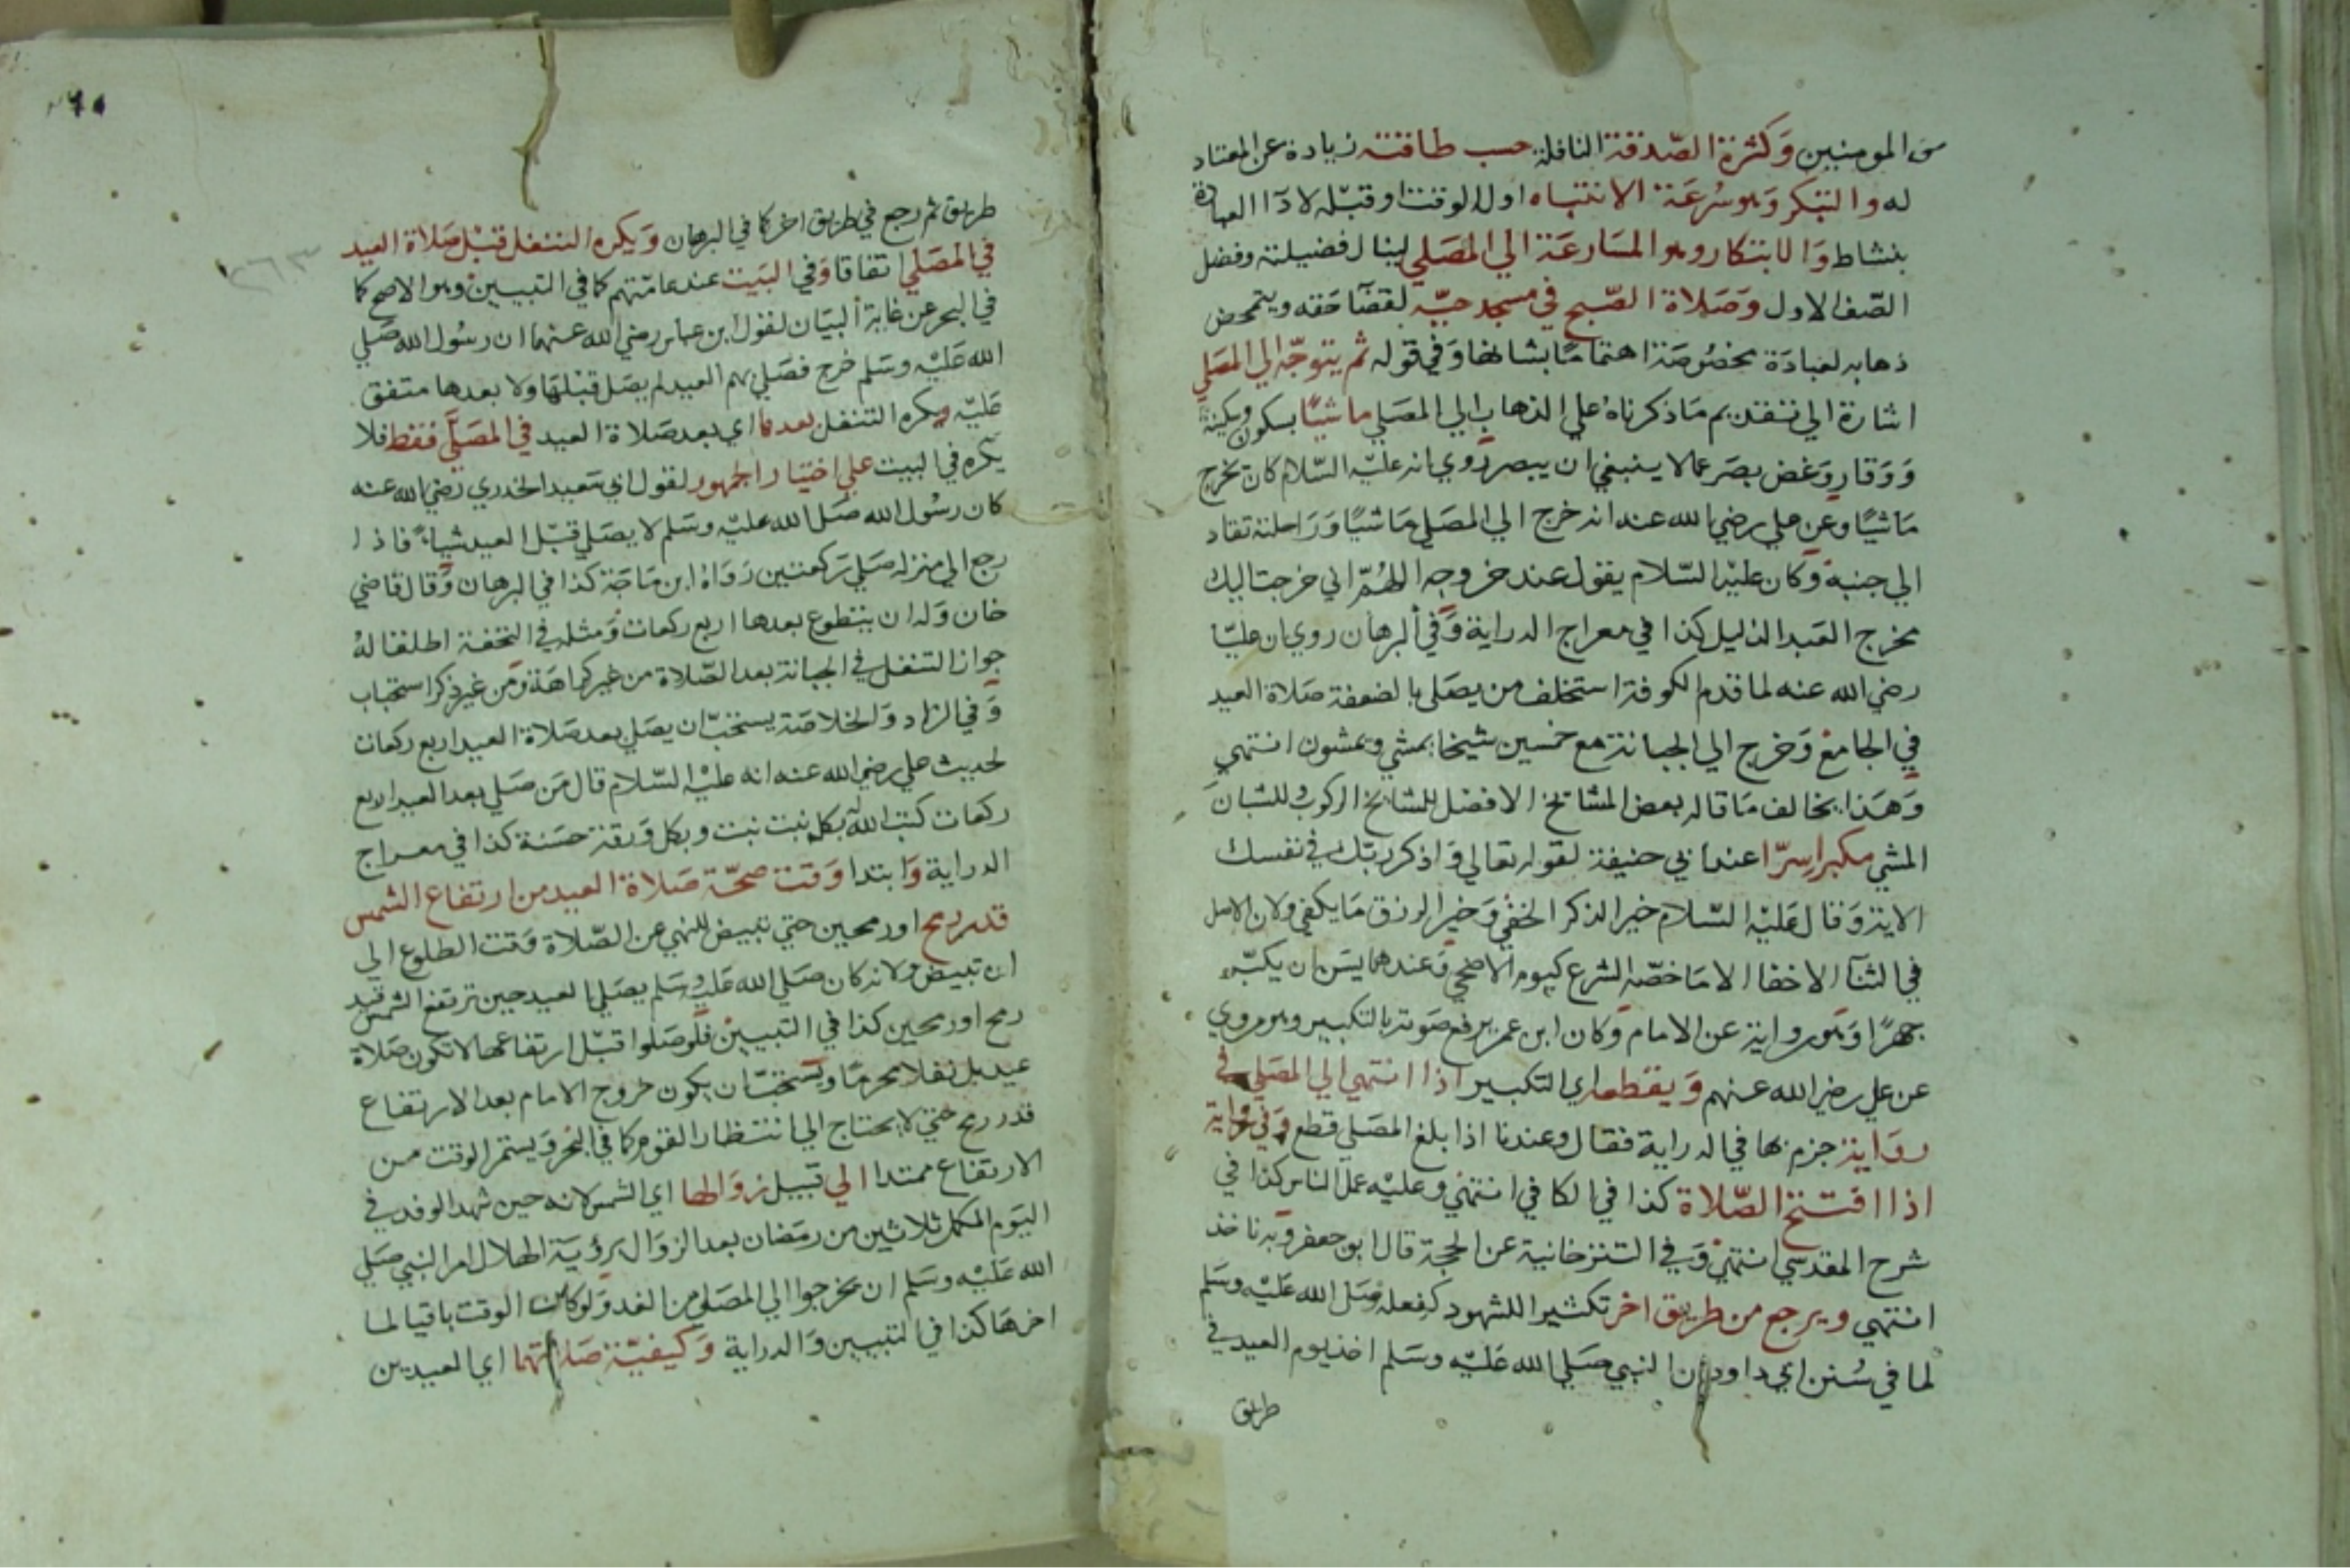 من المومنين وكثرة الصدقة النافلة حسب طاقته زيادة عن المعتاد
له والتبكر وهو سرعة الانتباه اول الوقت او قبله لادآ العبادة
بنشاط والابتكار وهو المسارعة الي المصلي لينال فضيلته وفضل
الصف الاول وصلاة الصبح في مسجد حيه لقضآ حقه ويتمحض
ذهابه لعبادة مخصوصة اهتماما بشانها وفي قوله ثم يتوجه الي المصلي
اشارة الي تقديم ما ذكرناه علي الذهاب الي المصلي ماشيا بسكون وسكينة
ووقار وغض بصر عما لا ينبغي ان يبصر روي انه عليه السلام كان يخرج
ماشيا وعن علي رضي الله عنه انه خرج الي المصلي ماشيا وراحلته تقاد
الي جنبه وكان عليه السلام يقول عند خروجه اللهم اني خرجت اليك
مخرج العبد الذليل كذا في معراج الدراية وفي البرهان روي ان عليا
رضي الله عنه لما قدم الكوفة استخلف من يصلي بالضعفة صلاة العيد
في الجامع وخرج الي الجبانة مع خمسين شيخا يمشي ويمشون انتهي
وهذا يخالف ما قاله بعض المشايخ الافضل للمشايخ الركوب وللشبان
المشي مكبرا سرا عند ابي حنيفة لقوله تعالي واذكر ربك في نفسك
الاية وقال عليه السلام خير الذكر الخفي وخير الرزق ما يكفي ولان الاصل
في الثنآ الاخفا الا ما خصه الشرع كيوم الاضحي وعندهما يسن ان يكبر
جهرا وهو رواية عن الامام وكان ابن عمر يرفع صوته بالتكبير وهو مروي
عن علي رضي الله عنهم ويقطعه اي التكبير اذا انتهي الي المصلي في
رواية جزم بها في الدراية فقال وعندنا اذا بلغ المصلي قطع وفي رواية
اذا افتتح الصلاة كذا في الكافي انتهي وعليه عمل الناس كذا في
شرح المقدسي انتهي وفي التترخانية عن الحجة قال ابو جعفر وبه ناخذ
انتهي ويرجع من طريق اخر تكثيرا للشهود كفعله صلي الله عليه وسلم
لما في سنن ابي داود ان النبي صلي الله عليه وسلم اخذ يوم العيد في
طريق
طريق ثم رجع في طريق اخر كما في البرهان ويكره التنفل قبل صلاة العيد
في المصلي اتفاقا وفي البيت عند عامتهم كما في التبيين وهو الاصح كما
في البحر عن غاية البيان لقول ابن عباس رضي الله عنهما ان رسول الله صلي
الله عليه وسلم خرج فصلي بهم العيد لم يصل قبلها ولا بعدها متفق
عليه ويكره التنفل بعدها اي بعد صلاة العيد في المصلي فقط فلا
يكره في البيت علي اختيار الجمهور لقول ابي سعيد الخدري رضي الله عنه
كان رسول الله صلي الله عليه وسلم لا يصلي قبل العيد شيا فاذا
رجع الي منزله صلي ركعتين رواه ابن ماجة كذا في البرهان وقال قاضي
خان وله ان يتطوع بعدها اربع ركعات ومثله في التحفة اطلقا له
جواز التنفل في الجبانة بعد الصلاة من غير كراهة ومن غير ذكر استحباب
وفي الزاد والخلاصة يستحب ان يصلي بعد صلاة العيد اربع ركعات
لحديث علي رضي الله عنه انه عليه السلام قال من صلي بعد العيد اربع
ركعات كتب الله له بكل نبت نبت وبكل ورقة حسنة كذا في معراج
الدراية وابتدا وقت صحة صلاة العيد من ارتفاع الشمس
قدر رمح او رمحين حتي تبيض للنهي عن الصلاة وقت الطلوع الي
ان تبيض ولانه كان صلي الله عليه وسلم يصلي العيد حين ترتفع الشمس قيد
رمح او رمحين كذا في التبيين فلو صلوا قبل ارتفاعها لا تكون صلاة
عيد بل نفلا محرما ويستحب ان يكون خروج الامام بعد الارتفاع
قدر رمح حتي لا يحتاج الي انتظار القوم كما في البحر ويستمر الوقت من
الارتفاع ممتدا الي قبيل زوالها اي الشمس لانه حين شهد الوفد في
اليوم المكمل ثلاثين من رمضان بعد الزوال برؤية الهلال امر النبي صلي
الله عليه وسلم ان يخرجوا الي المصلي من الغد ولو كان الوقت باقيا لما
اخرها كذا في التبيين والدراية وكيفية صلاتهما اي العيدين